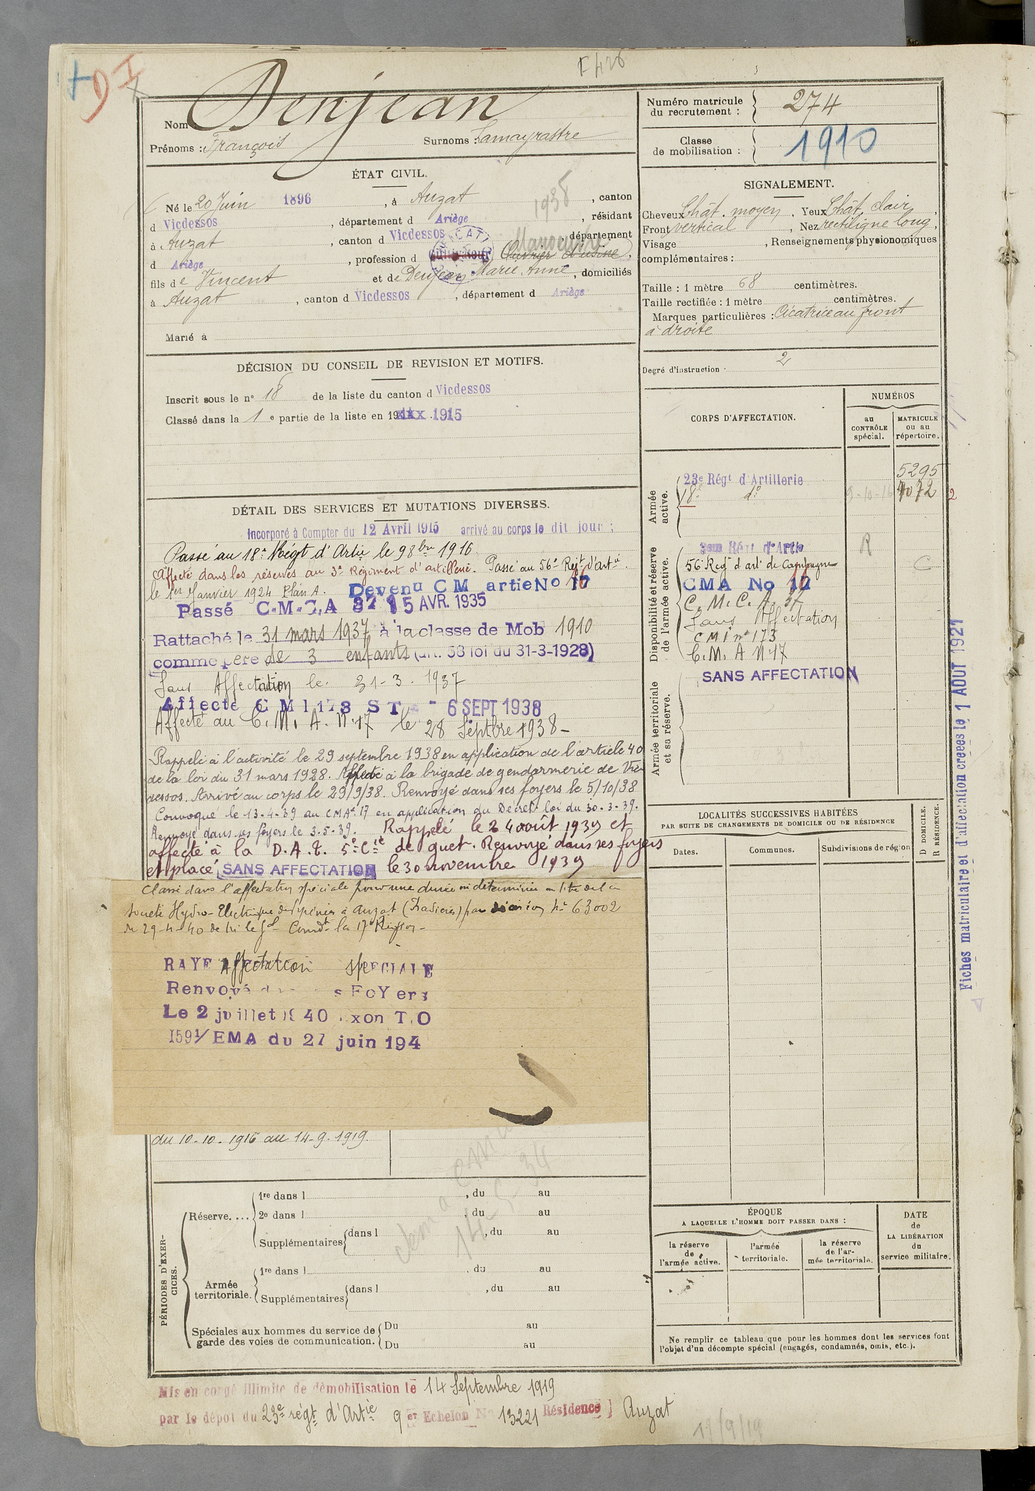 Denjean
Nom
Prénoms : François
Surnoms : Lamayrastre
Numéro matricule du recrutement : 274
Classe de mobilisation : 1910
ÉTAT CIVIL.
Né le 20 Juin 1896, à Auzat, canton
d Vicdessos, département d Ariège, résidant
à Auzat, canton d Vicdessos, département
d Ariège, profession d Manoeuvre
fils de Vincent et de Denjean Marie Anne, domiciliés
à Auzat, canton d Vicdessos, département d Ariège
Marié à
SIGNALEMENT.
Cheveux Chât. moyen. Yeux Chât. clair,
Front vertical, Nez rectiligne long,
Visage, Renseignements physionomiques
complémentaires :
Taille : 1 mètre 68 centimètres.
Taille rectifiée : 1 mètre centimètres.
Marques particulières : Cicatrice au front
à droite
Degré d'instruction 2
DÉCISION DU CONSEIL DE REVISION ET MOTIFS.
Inscrit sous le n° 18 de la liste du canton d Vicdessos
Classé dans la 1 e partie de la liste en 1915
CORPS D'AFFECTATION.
NUMÉROS
au CONTRÔLE spécial.
MATRICULE ou au répertoire.
Armée active.
23e Régt d'Artillerie 5295
18e do 9-10-16 4072
Disponibilité et réserve de l'armée active.
3eme Régt d'Artie R
56e Régt d'art. de Campagne
CMA No 17
C. M. C. A. 37
Sans Affectation
CMI n° 173
C. M. A N 17
Armée territoriale et sa réserve.
SANS AFFECTATION
DÉTAIL DES SERVICES ET MUTATIONS DIVERSES.
Incorporé à Compter du 12 Avril 1915 arrivé au corps le dit jour :
Passé au 18e Régt d'Artie le 9 8bre 1916.
Affecté dans les réserves au 3e Régiment d'artillerie. Passé au 56e Regt d'artie.
le 1er Janvier 1924 Plan A. Devenu C M artie No 17
Passé C.M.C.A 15 AVR. 1935
Rattaché le 31 mars 1937 à la classe de Mob 1910
comme père de 3 enfants (art. 58 loi du 31-3-1928)
Sans Affectation le 31-3-1937
Affecté C M I 173 S T 6 SEPT 1938
Affecté au C. M. A. N. 17 le 28 Septbre 1938-
Rappelé à l'activité le 29 septembre 1938 en application de l'article 40
de la loi du 31 mars 1928. Affecté à la brigade de gendarmerie de Vic-
dessos. Arrivé au corps le 29/9/38. Renvoyé dans ses foyers le 5/10/38
Convoqué le 13-4-39 au CMA 17 en application du Décret loi du 20-3-39.
Renvoyé dans ses foyers le 3-5-39. Rappelé le 24 août 1939 et
affecté à la D.A.T. 5e Cie de guet. Renvoyé dans ses foyers
et placé SANS AFFECTATION le 30 novembre 1939
Classé dans l'affectation spéciale pour une durée indéterminée au titre de la
Société Hydro-Electrique des Pyrénées à Auzat (Pradières) par décision N° 63002
du 29-4-40 de Mr le Gal Comdt la 17e Région-
RAYE Affectation SPECIALE
Renvoyé FOYers
Le 2 juillet 1940 T.O
1591/EMA du 27 juin 194
du 10-10-1916 au 14-9-1919.
LOCALITÉS SUCCESSIVES HABITÉES
PAR SUITE DE CHANGEMENTS DE DOMICILE OU DE RÉSIDENCE
Dates.
Communes.
Subdivisions de région
D DOMICILE.
R RÉSIDENCE.
Fiches matriculaire et d'affectation créées le 1 AOUT 1921
PÉRIODES D'EXERCICES.
Réserve....
1re dans l , du au
2e dans l , du au
Supplémentaires dans l , du au
Armée territoriale.
1re dans l , du au
Supplémentaires dans l , du au
Spéciales aux hommes du service de garde des voies de communication.
Du au
Du au
ÉPOQUE
A LAQUELLE L'HOMME DOIT PASSER DANS :
la réserve de l'armée active.
l'armée territoriale.
la réserve de l'armée territoriale.
DATE DE LA LIBÉRATION du service militaire.
Ne remplir ce tableau que pour les hommes dont les services font
l'objet d'un décompte spécial (engagés, condamnés, omis, etc.).
Mis en congé illimité de démobilisation le 14 Septembre 1919
par le dépôt du 23e régt d'Artie 9er Echelon No 13221 Résidence } Auzat
17/9/19